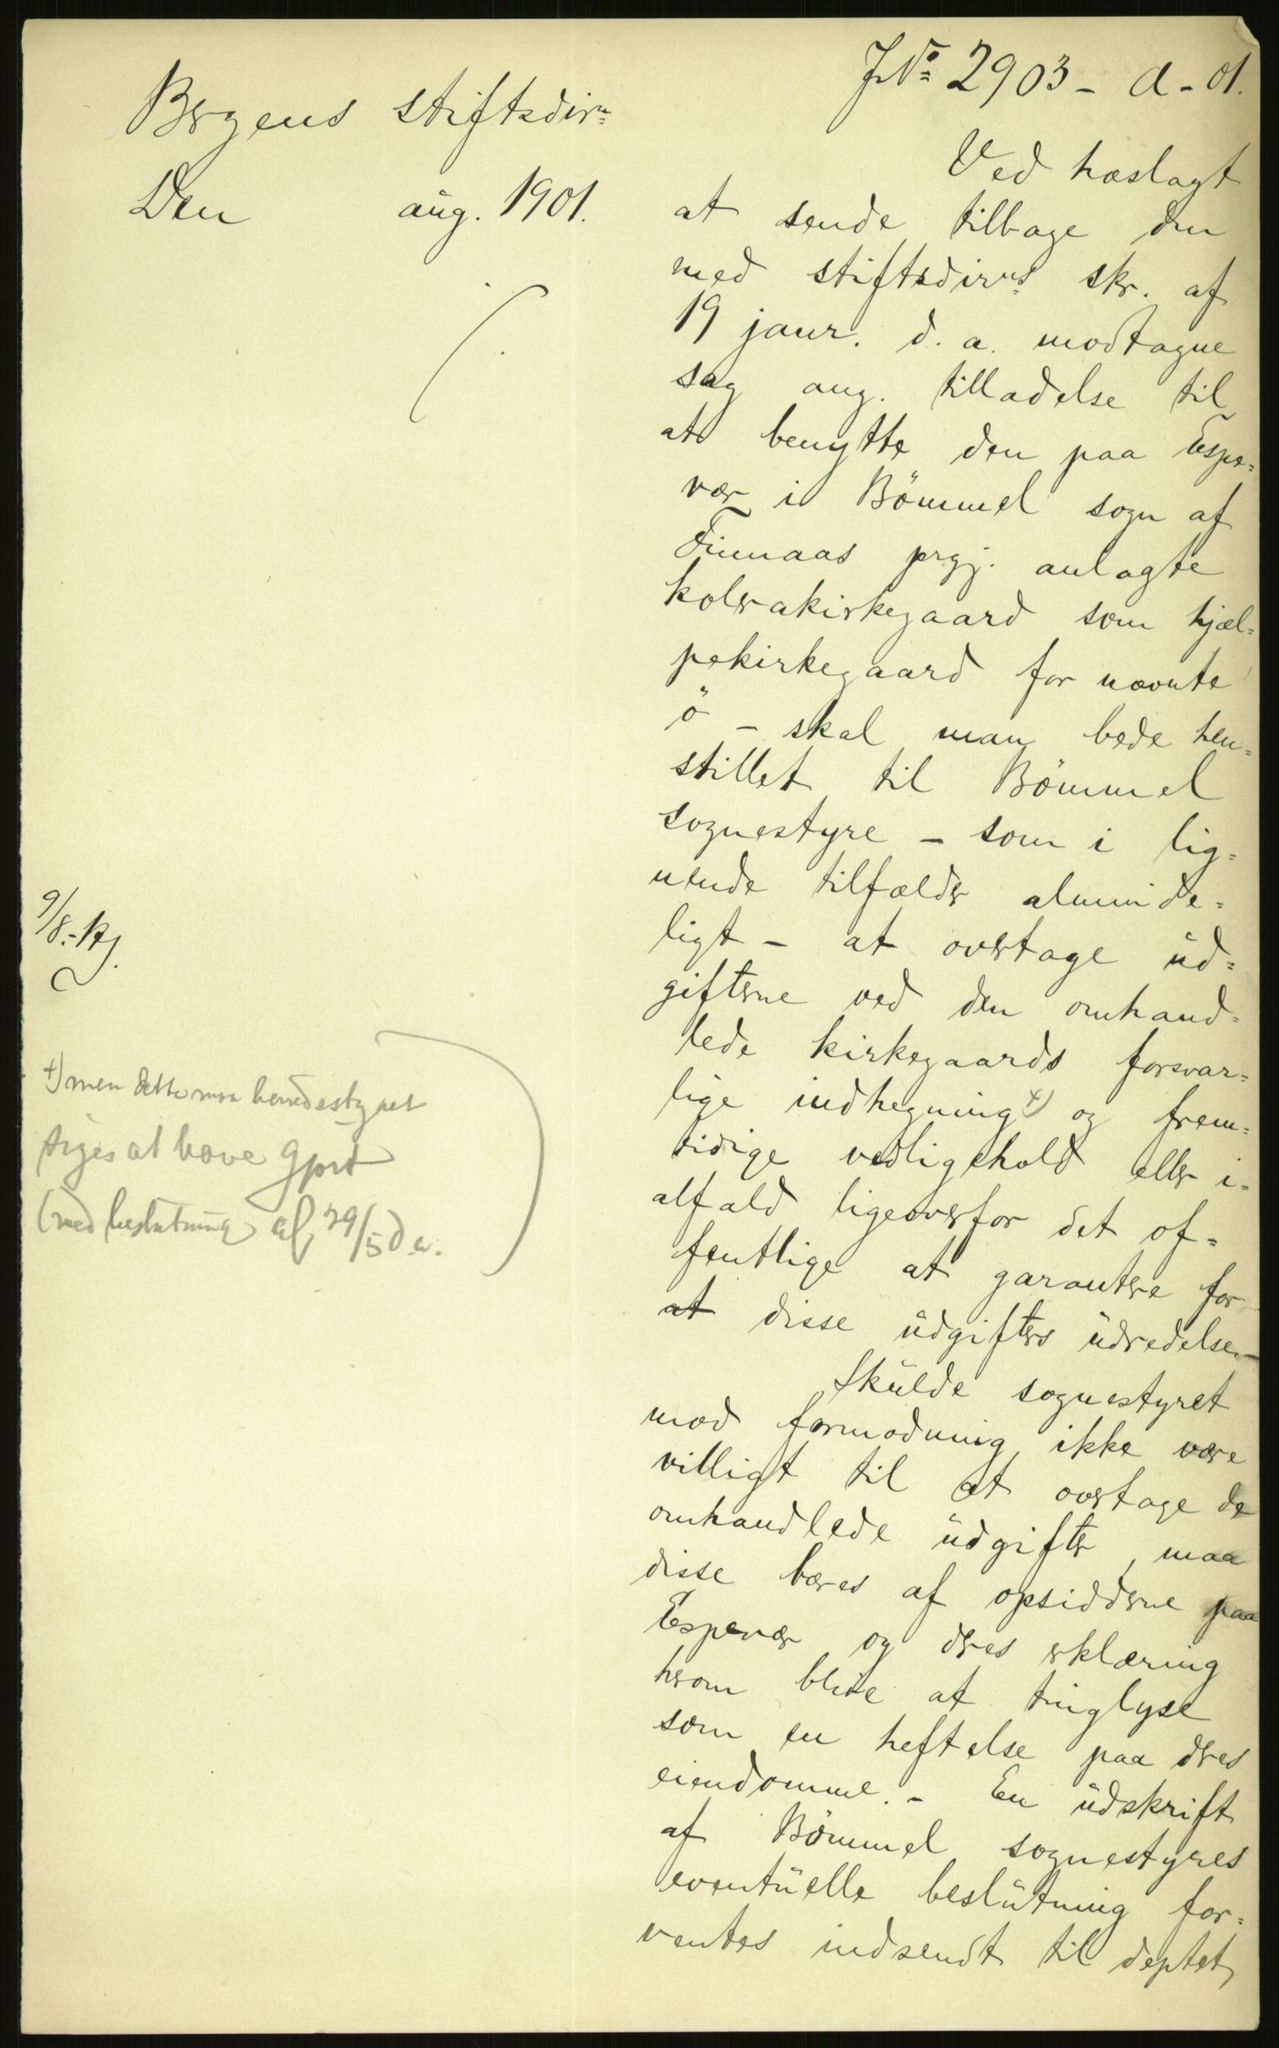 JNo 2903 - A - 01.
Bergens stiftsdirn
Den aug. 1901.
Ved hæslagt
at sende tilbage den
med stiftsdirns skr. af
19 janr. d. a. modtagne
sag ang. tilladelse til
at benytte den paa Espe=
vær i Bömmel sogn af
Finnaas prgj. anlagte
kolerakirkegaard som hjæl=
pekirkegaard for nævnte
ö - skal man bede hen=
stillet til Bömmel
sognestyre - som i lig=
nende tilfælder alminde=
ligt - at overtage ud=
gifterne ved den omhand=
lede kirkegaards forsvar=
lige indhegning x) og frem=
tidige vedligehold eller i=
alfald ligeoverfor det of=
fentlige at garantere for
at disse udgifters udredelse. -
Skulde sognestyret
mod formodning ikke være
villigt til at overtage de
omhandlede udgifter, maa
disse bæres af opsidderne paa
Espevær og deres erklæring
herom blive at tinglyse
som en heftelse paa deres
eiendomme. - En udskrift
af Bömmel sognestyres
eventuelle beslutning for=
ventes indsendt til deptet,
9/8. - Kj.
x) men dette maa herredestyret
siges at have gjort
(ved beslutning af 29/5 d. a.